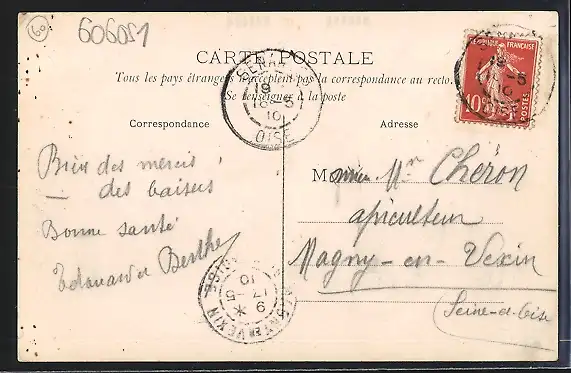 60
606051
CARTE POSTALE
Tous les pays étrangers n'acceptent pas la correspondance au recto.
Se renseigner à la poste
Correspondance
Adresse
RÉPUBLIQUE FRANÇAISE
10
POSTES
19
8-5
10
OISE
Bien des mercis,
des baisers
Bonne santé
Edouard et Berthe
M Chéron
apiculteur
Magny-en-Vexin
(Seine-et-Oise
MAGNY-EN-VEXIN
9
17 -5
10